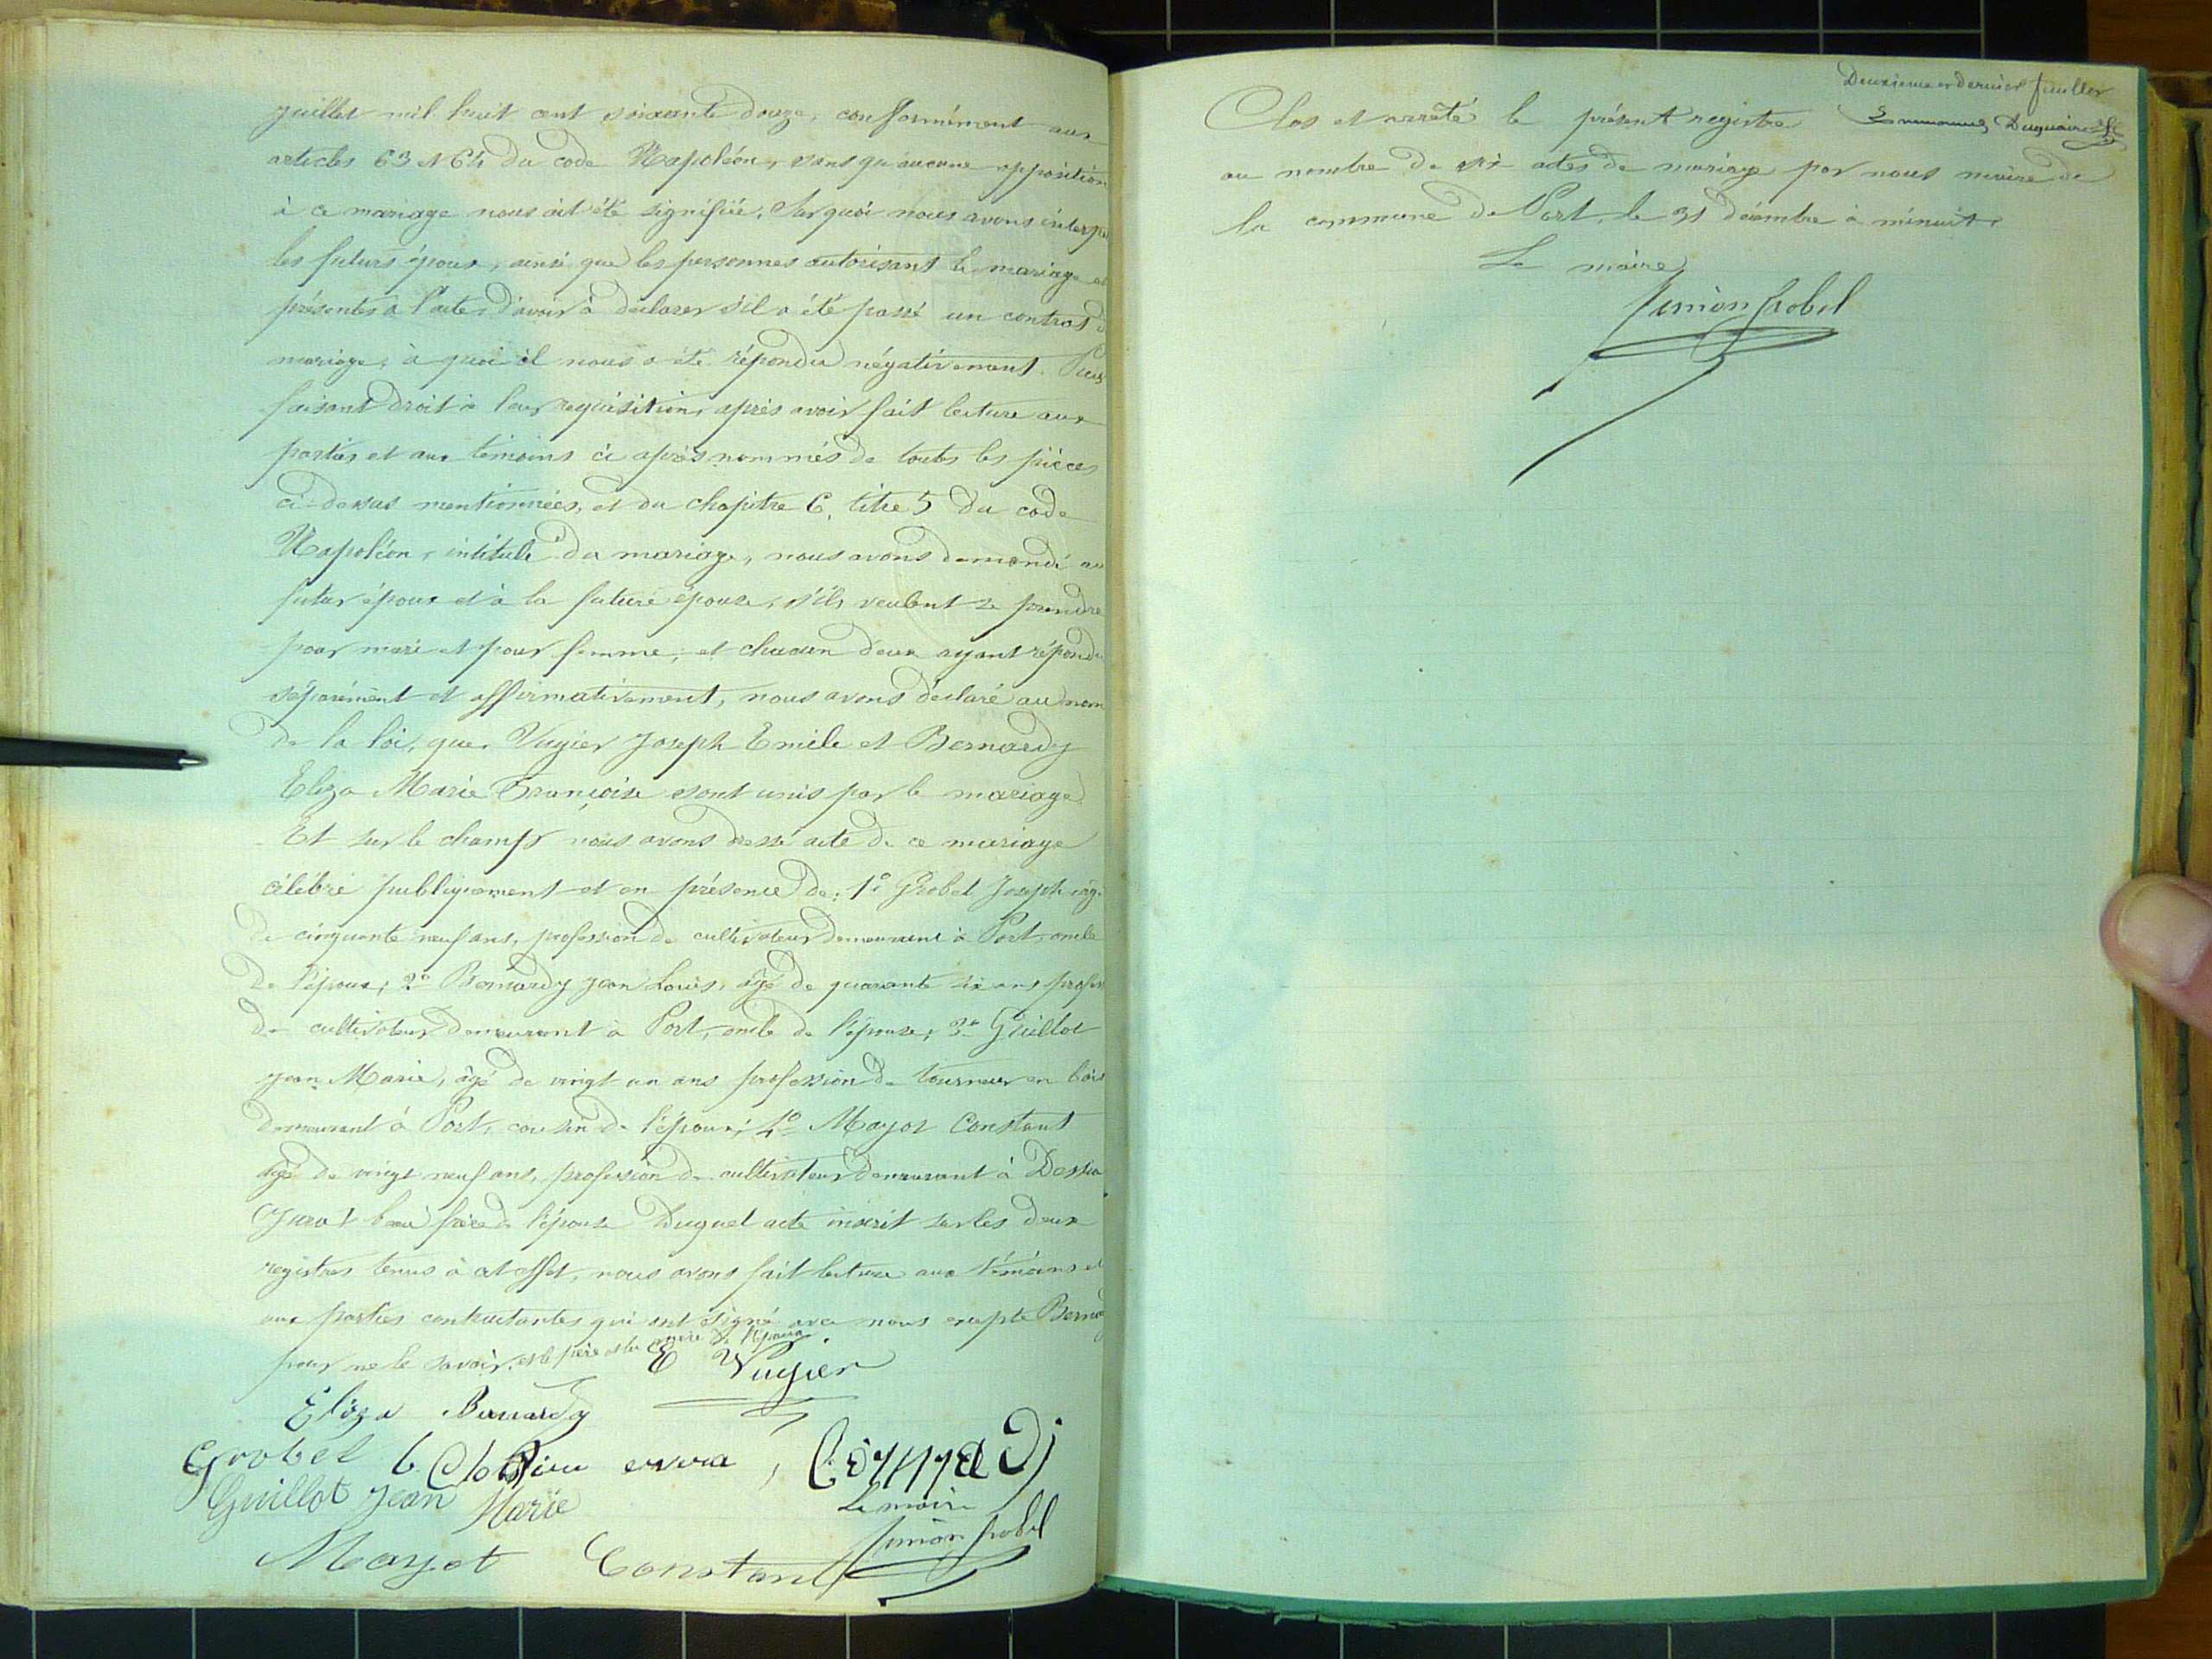 juillet mil huit cent soixante douze, conformément aux
articles 63 et 64 du code Napoléon, sans qu'aucune opposition
à ce mariage nous ait été signifiée, Sur quoi nous avons interpel
les futurs époux, ainsi que les personnes autorisant le mariage et
présentes à l'acte, d'avoir à déclarer s'il a été passé un contrat d
mariage, à quoi il nous a été répondu négativement. Puis
faisant droit à leur requisition, après avoir fait lecture aux
parties et aux témoins ci après nommés de toutes les pièces
ci-dessus mentionnées, et du chapitre 6, titre 5 du code
Napoléon, intitulé du mariage, nous avons demandé au
futur époux et à la future épouse, s'ils veulent se prendre
pour mari et pour femme; et chacun d'eux ayant répondu
séparément et affirmativement, nous avons déclaré au nom
de la loi, que Vuyier Joseph Emile et Bernardy
Eliza Marie Françoise sont unis par le mariage
Et sur le champ nous avons dressé acte de ce mariage
célébré publiquement et en présence de: 1° Grobel Joseph âg
de cinquante neuf ans, profession de cultivateur demeurant à Port, oncle
de l'époux; 2° Bernardy Jean Louis, âgé de quarante six ans profes
de cultivateur demeurant à Port, oncle de l'épouse; 3° Guillot
Jean Marie, âgé de vingt un ans profession de tourneur en bois
demeurant à Port, cousin de l'époux; 4° Mayot Constant
âgé de vingt neuf ans, profession de cultivateur demeurant à Dessia
(Jura) beau frère de l'épouse Duquel acte inscrit sur les deux
registres tenus à cet effet, nous avons fait lecture aux témoins et
aux parties contractantes qui ont signé avec nous excepté Berna
pour ne le savoir. et le père et la mère de l'époux.
E Vuyier
Eliza Bernardy
Grobel
Guillot Jean Marie
Le maire
Mayot Constant
Simon Grobel
Deuxième et dernier feuillet
Clos et arrêté le présent registre
au nombre de six actes de mariage par nous maire de
la commune de Port, le 31 décembre à minuit.
Le maire
Simon Grobel